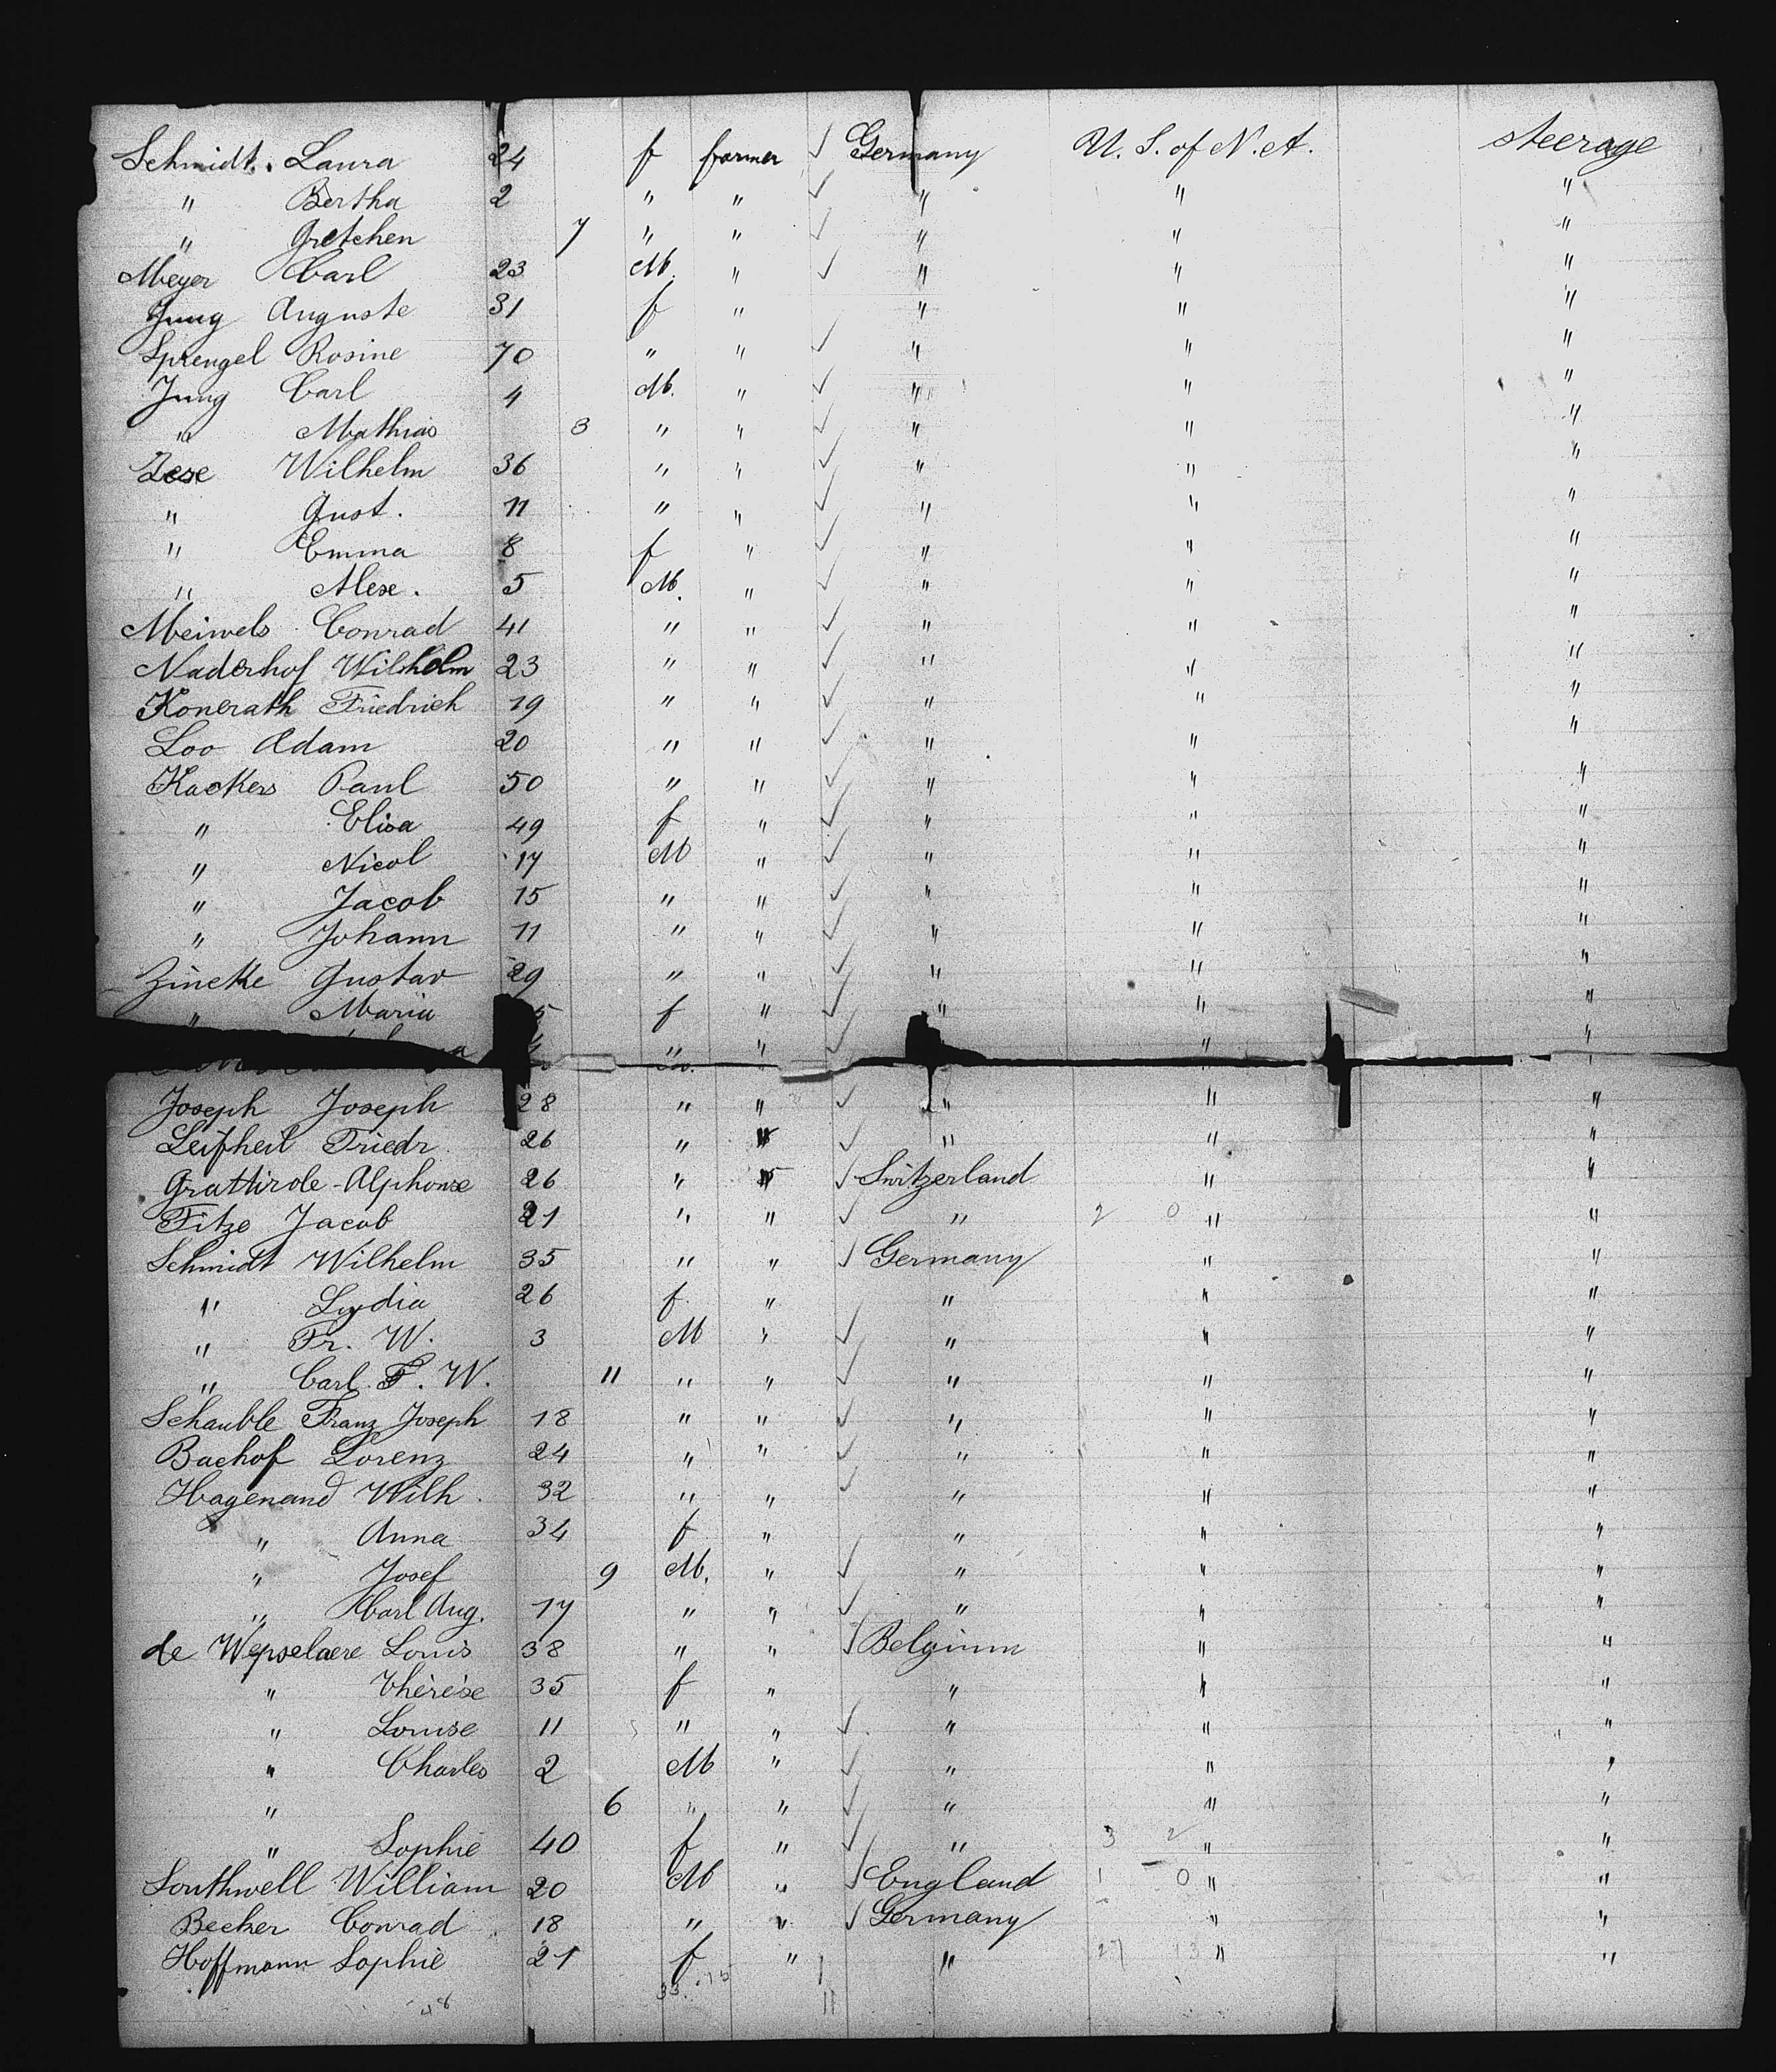 Schmidt. Laura 24 f farmer ✓ Germany U. S. of N. A. steerage
" Bertha 2 " " ✓ " " "
" Gretchen 7 " " ✓ " " "
Meyer Carl 23 M. " ✓ " " "
Jung Auguste 31 f " " " "
Sprengel Rosine 70 " " ✓ " " "
Jung Carl 4 M. " ✓ " " "
" Mathias 3 " " ✓ " " "
Wilhelm 36 " " ✓ " " "
" Gust. 11 " " ✓ " " "
" Emma 8 f " ✓ " " "
" Alex. 5 M. " ✓ " " "
Meiwels Conrad 41 " " ✓ " " "
Naderhof Wilhelm 23 " " ✓ " " "
Konerath Friedrich 19 " " ✓ " " "
Loo Adam 20 " " ✓ " " "
Kackers Paul 50 " " ✓ " " "
" Elisa 49 f " ✓ " " "
" Nicol 17 M " ✓ " " "
" Jacob 15 " " ✓ " " "
" Johann 11 " " ✓ " " "
Zincke Gustav 29 " " ✓ " " "
" Maria 5 f " ✓ " " "
" " ✓ " "
Joseph Joseph 28 " " ✓ " " "
Leifheit Friedr. 26 " " ✓ " " "
Grattirole - Alphonse 26 " " ✓ Switzerland " "
Fitze Jacob 21 " " ✓ " 2 0 " "
Schmidt Wilhelm 35 " " ✓ Germany " "
" Lydia 26 f " " " "
" Fr. W. 3 M " ✓ " " "
" Carl F. W. 11 " " ✓ " " "
Schauble Franz Joseph 18 " " ✓ " " "
Bachof Lorenz 24 " " ✓ " " "
Hagenand Wilh. 32 " " ✓ " " "
" Anna 34 f " " " "
" Josef 9 M. " ✓ " " "
" Carl Aug. 17 " " ✓ " " "
de Wepselaere Louis 38 " " ✓ Belgium " "
" Thérèse 35 f " " " "
" Louise 11 " " ✓ " " "
" Charles 2 M " ✓ " " "
" 6 " " ✓ " " "
" Sophie 40 f " ✓ " 3 2 " "
Southwell William 20 M " ✓ England 1 0 " "
Becker Conrad 18 " " ✓ Germany " "
Hoffmann Sophie 21 f " " 27 13 " "
33. 15
48